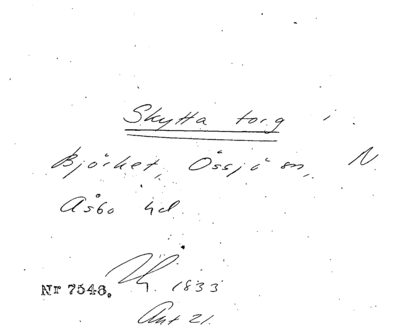 Skytta torg i
Björket, Össjö sn, N
Åsbo hd.
Nr 7548. 1833
Akt 21.